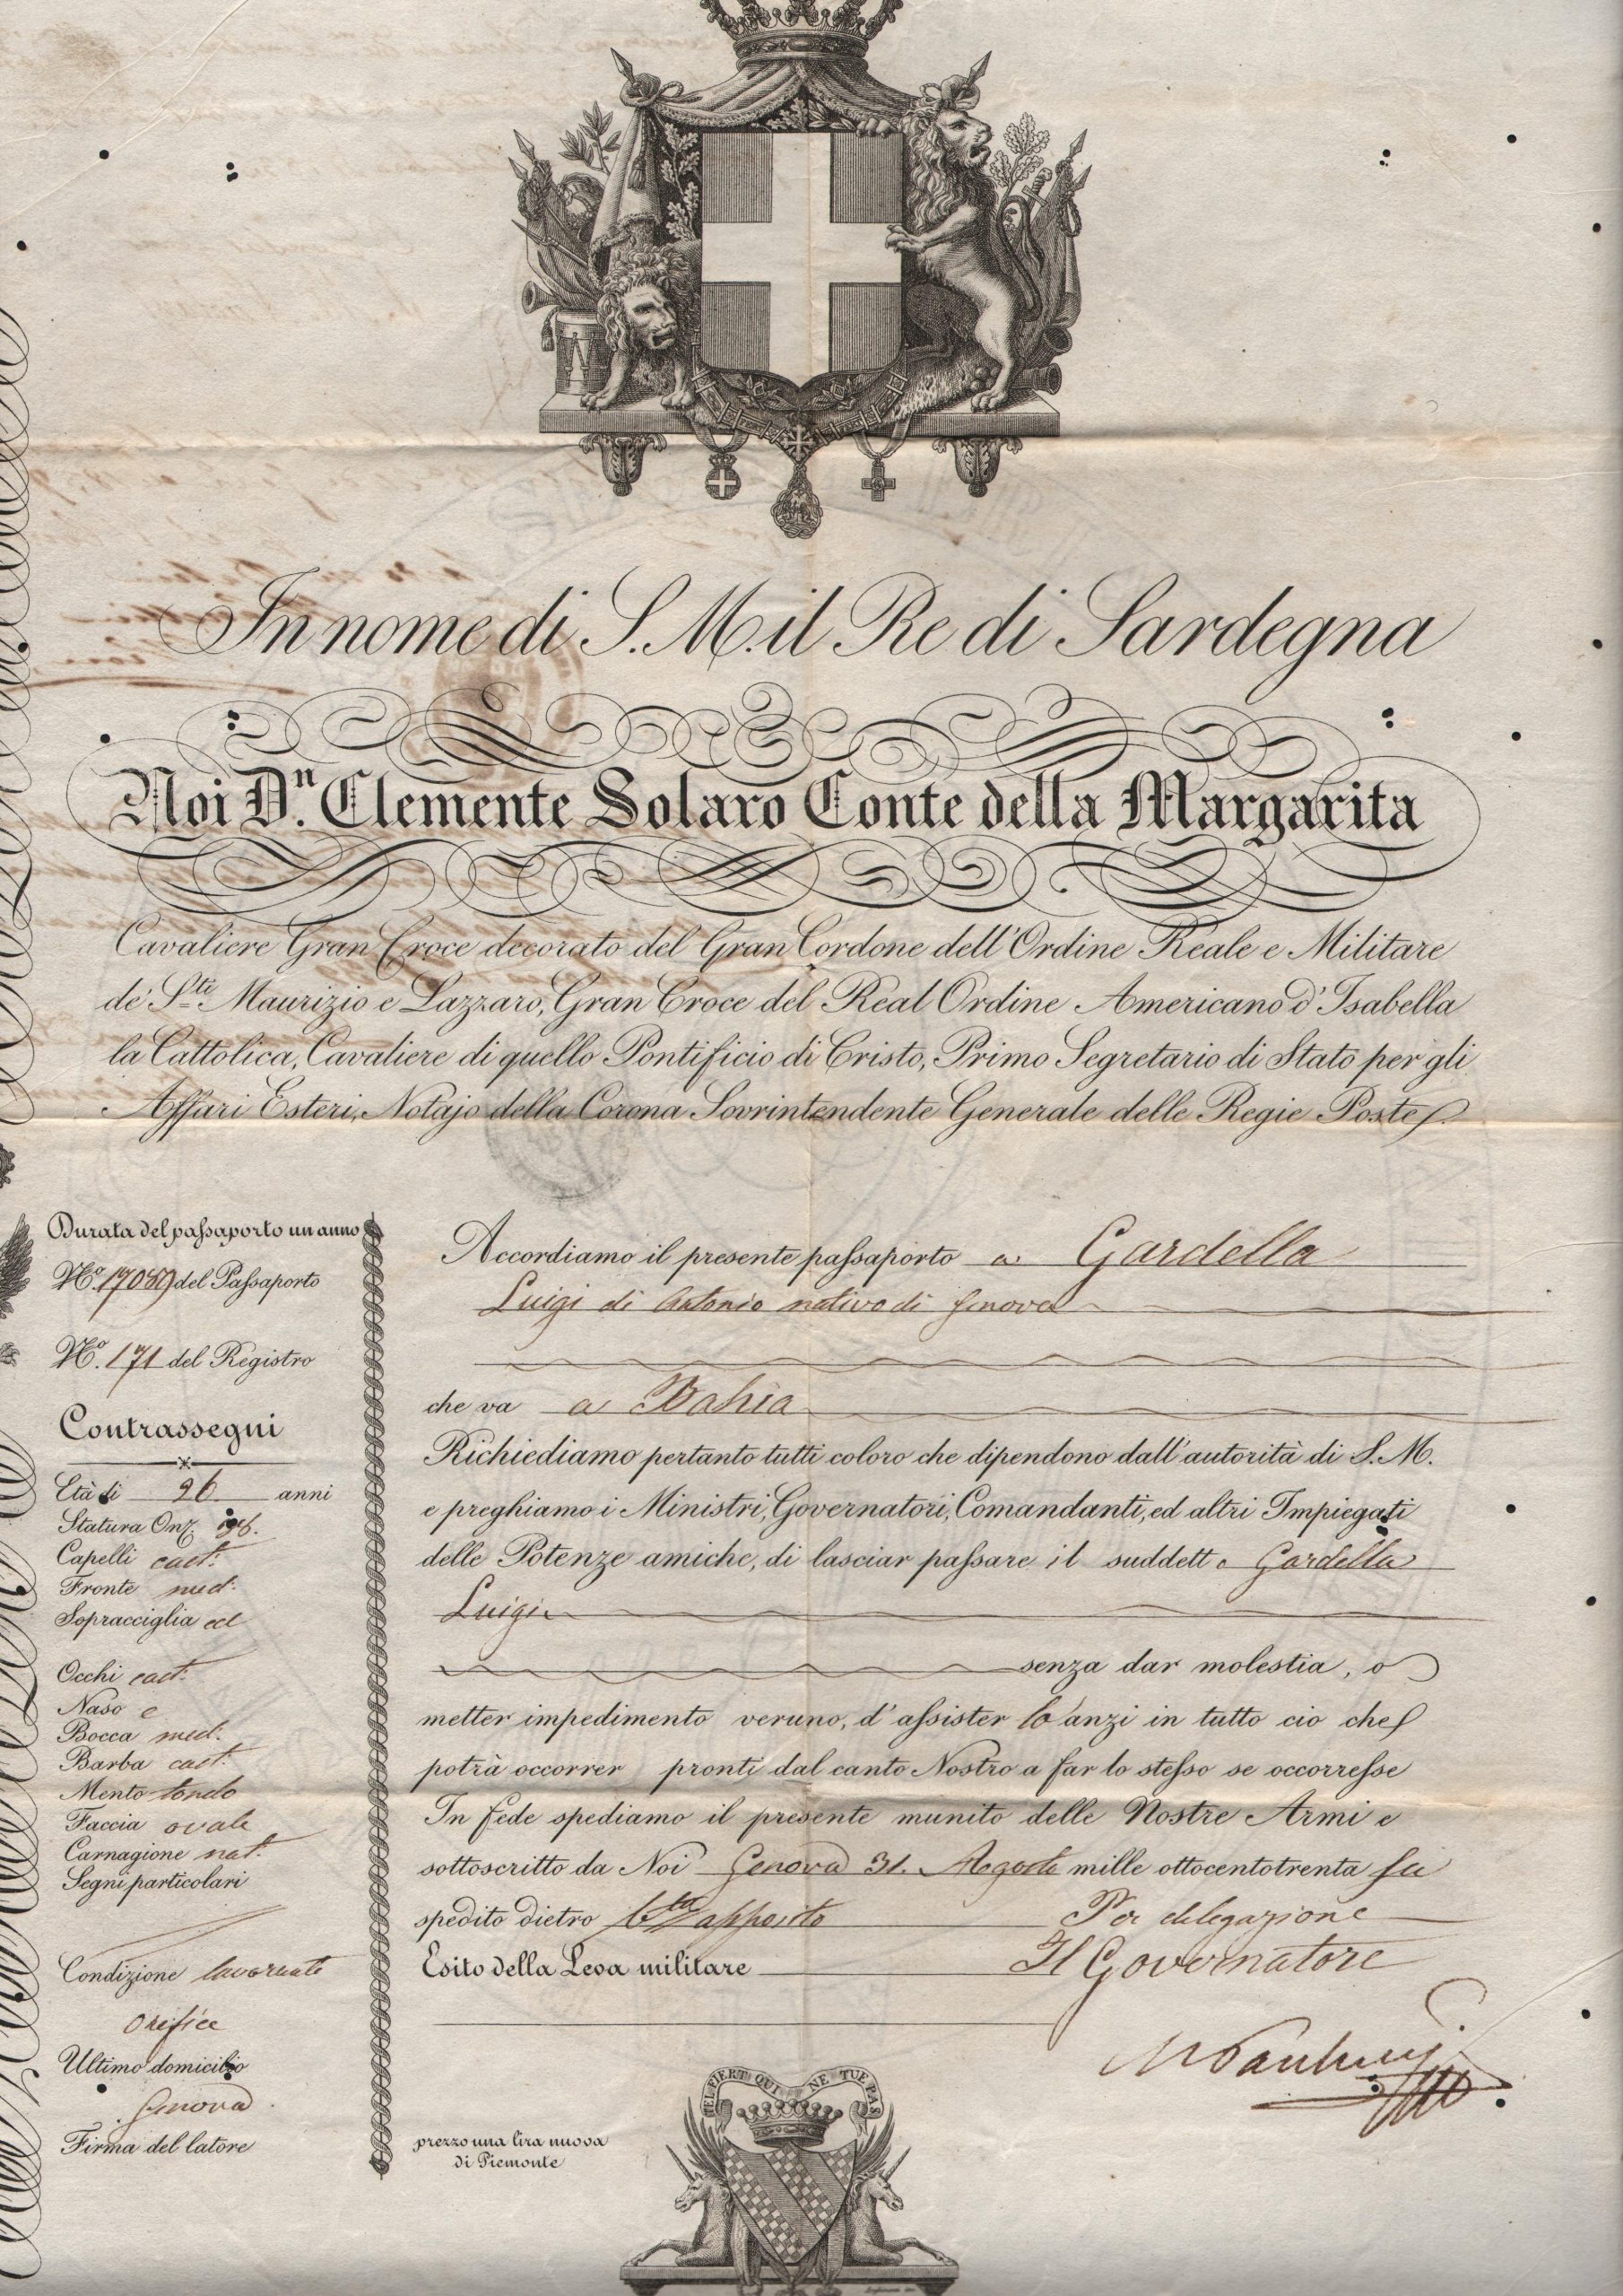 In nome di S. M. il Re di Sardegna
Noi D.n Clemente Solaro Conte della Margarita
Cavaliere Gran Croce decorato del Gran Cordone dell'Ordine Reale e Militare
de' S.ti Maurizio e Lazzaro, Gran Croce del Real Ordine Americano d'Isabella
la Cattolica, Cavaliere di quello Pontificio di Cristo, Primo Segretario di Stato per gli
Affari Esteri, Notajo della Corona Sovrintendente Generale delle Regie Poste
Durata del passaporto un anno
N.o 17089 del Passaporto
N.o 171 del Registro
Contrassegni
Età di 26 anni
Statura Onz.
Capelli cast:
Fronte med:
Sopracciglia
Occhi cast:
Naso
Bocca med:
Barba cast:
Mento tondo
Faccia ovale
Carnagione nat:
Segni particolari
Condizione lavorante
orefice
Ultimo domicilio
Genova
Firma del latore
Accordiamo il presente passaporto a Gardella
Luigi di Antonio nativo di Genova
che va a Bahia
Richiediamo pertanto tutti coloro che dipendono dall'autorità di S. M.
e preghiamo i Ministri, Governatori, Comandanti, ed altri Impiegati
delle Potenze amiche, di lasciar passare il suddetto Gardella
Luigi
senza dar molestia, o
metter impedimento veruno, d'assister lo anzi in tutto cio che
potrà occorrer pronti dal canto Nostro a far lo stesso se occorresse
In fede spediamo il presente munito delle Nostre Armi e
sottoscritto da Noi Genova 31. Agosto mille ottocentotrenta sei
spedito dietro apposito
Per delegazione
Esito della Leva militare
Il Governatore
prezzo una lira nuova
di Piemonte
TEL FIERT QUI NE TUE PAS